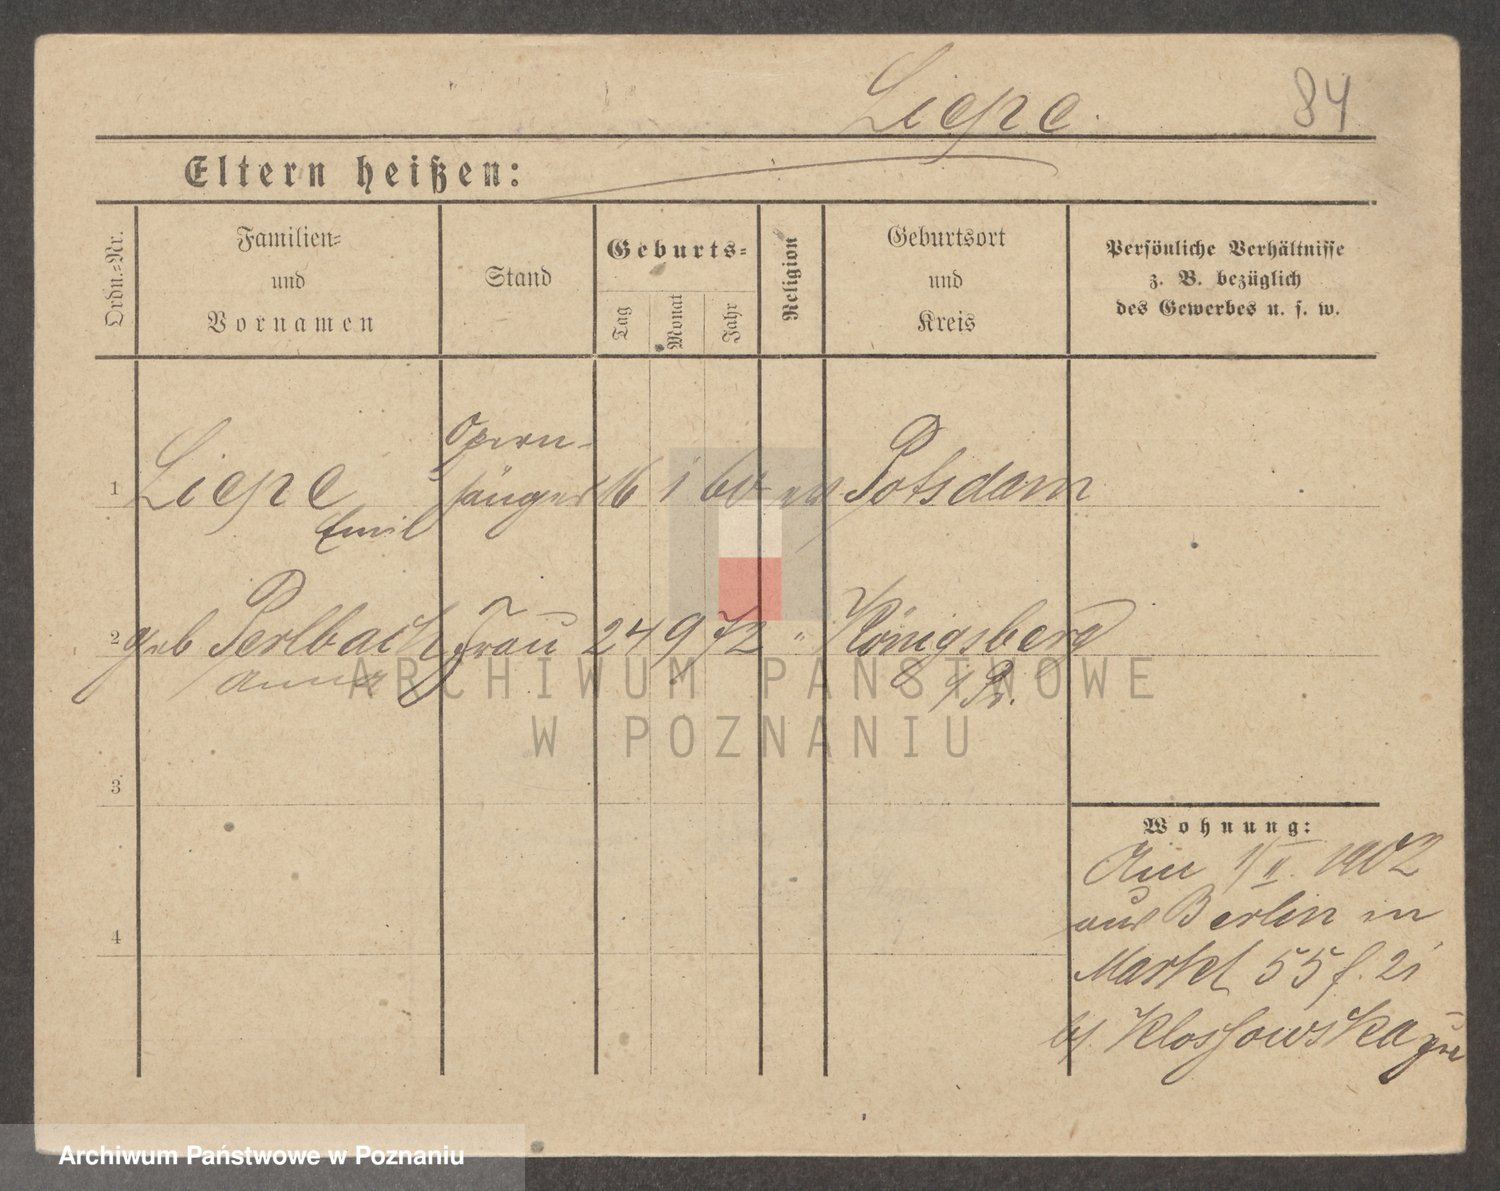 Liepe.
84
Eltern heißen:
Ordn.-Nr.
Familien-
und
Vornamen
Stand
Geburts-
Tag
Monat
Jahr
Religion
Geburtsort
und
Kreis
Persönliche Verhältnisse
z. B. bezüglich
des Gewerbes u. s. w.
1 Liepe Opern-
sänger 16 1 60 ev Potsdam
Emil
2 geb Perlbach Frau 24 9 72 " Königsberg
Anna
Pr.
3
4
Wohnung:
II. 1902
aus Berlin in
Markt 55
bei Klossowska
ARCHIWUM PAŃSTWOWE
W POZNANIU
Archiwum Państwowe w Poznaniu